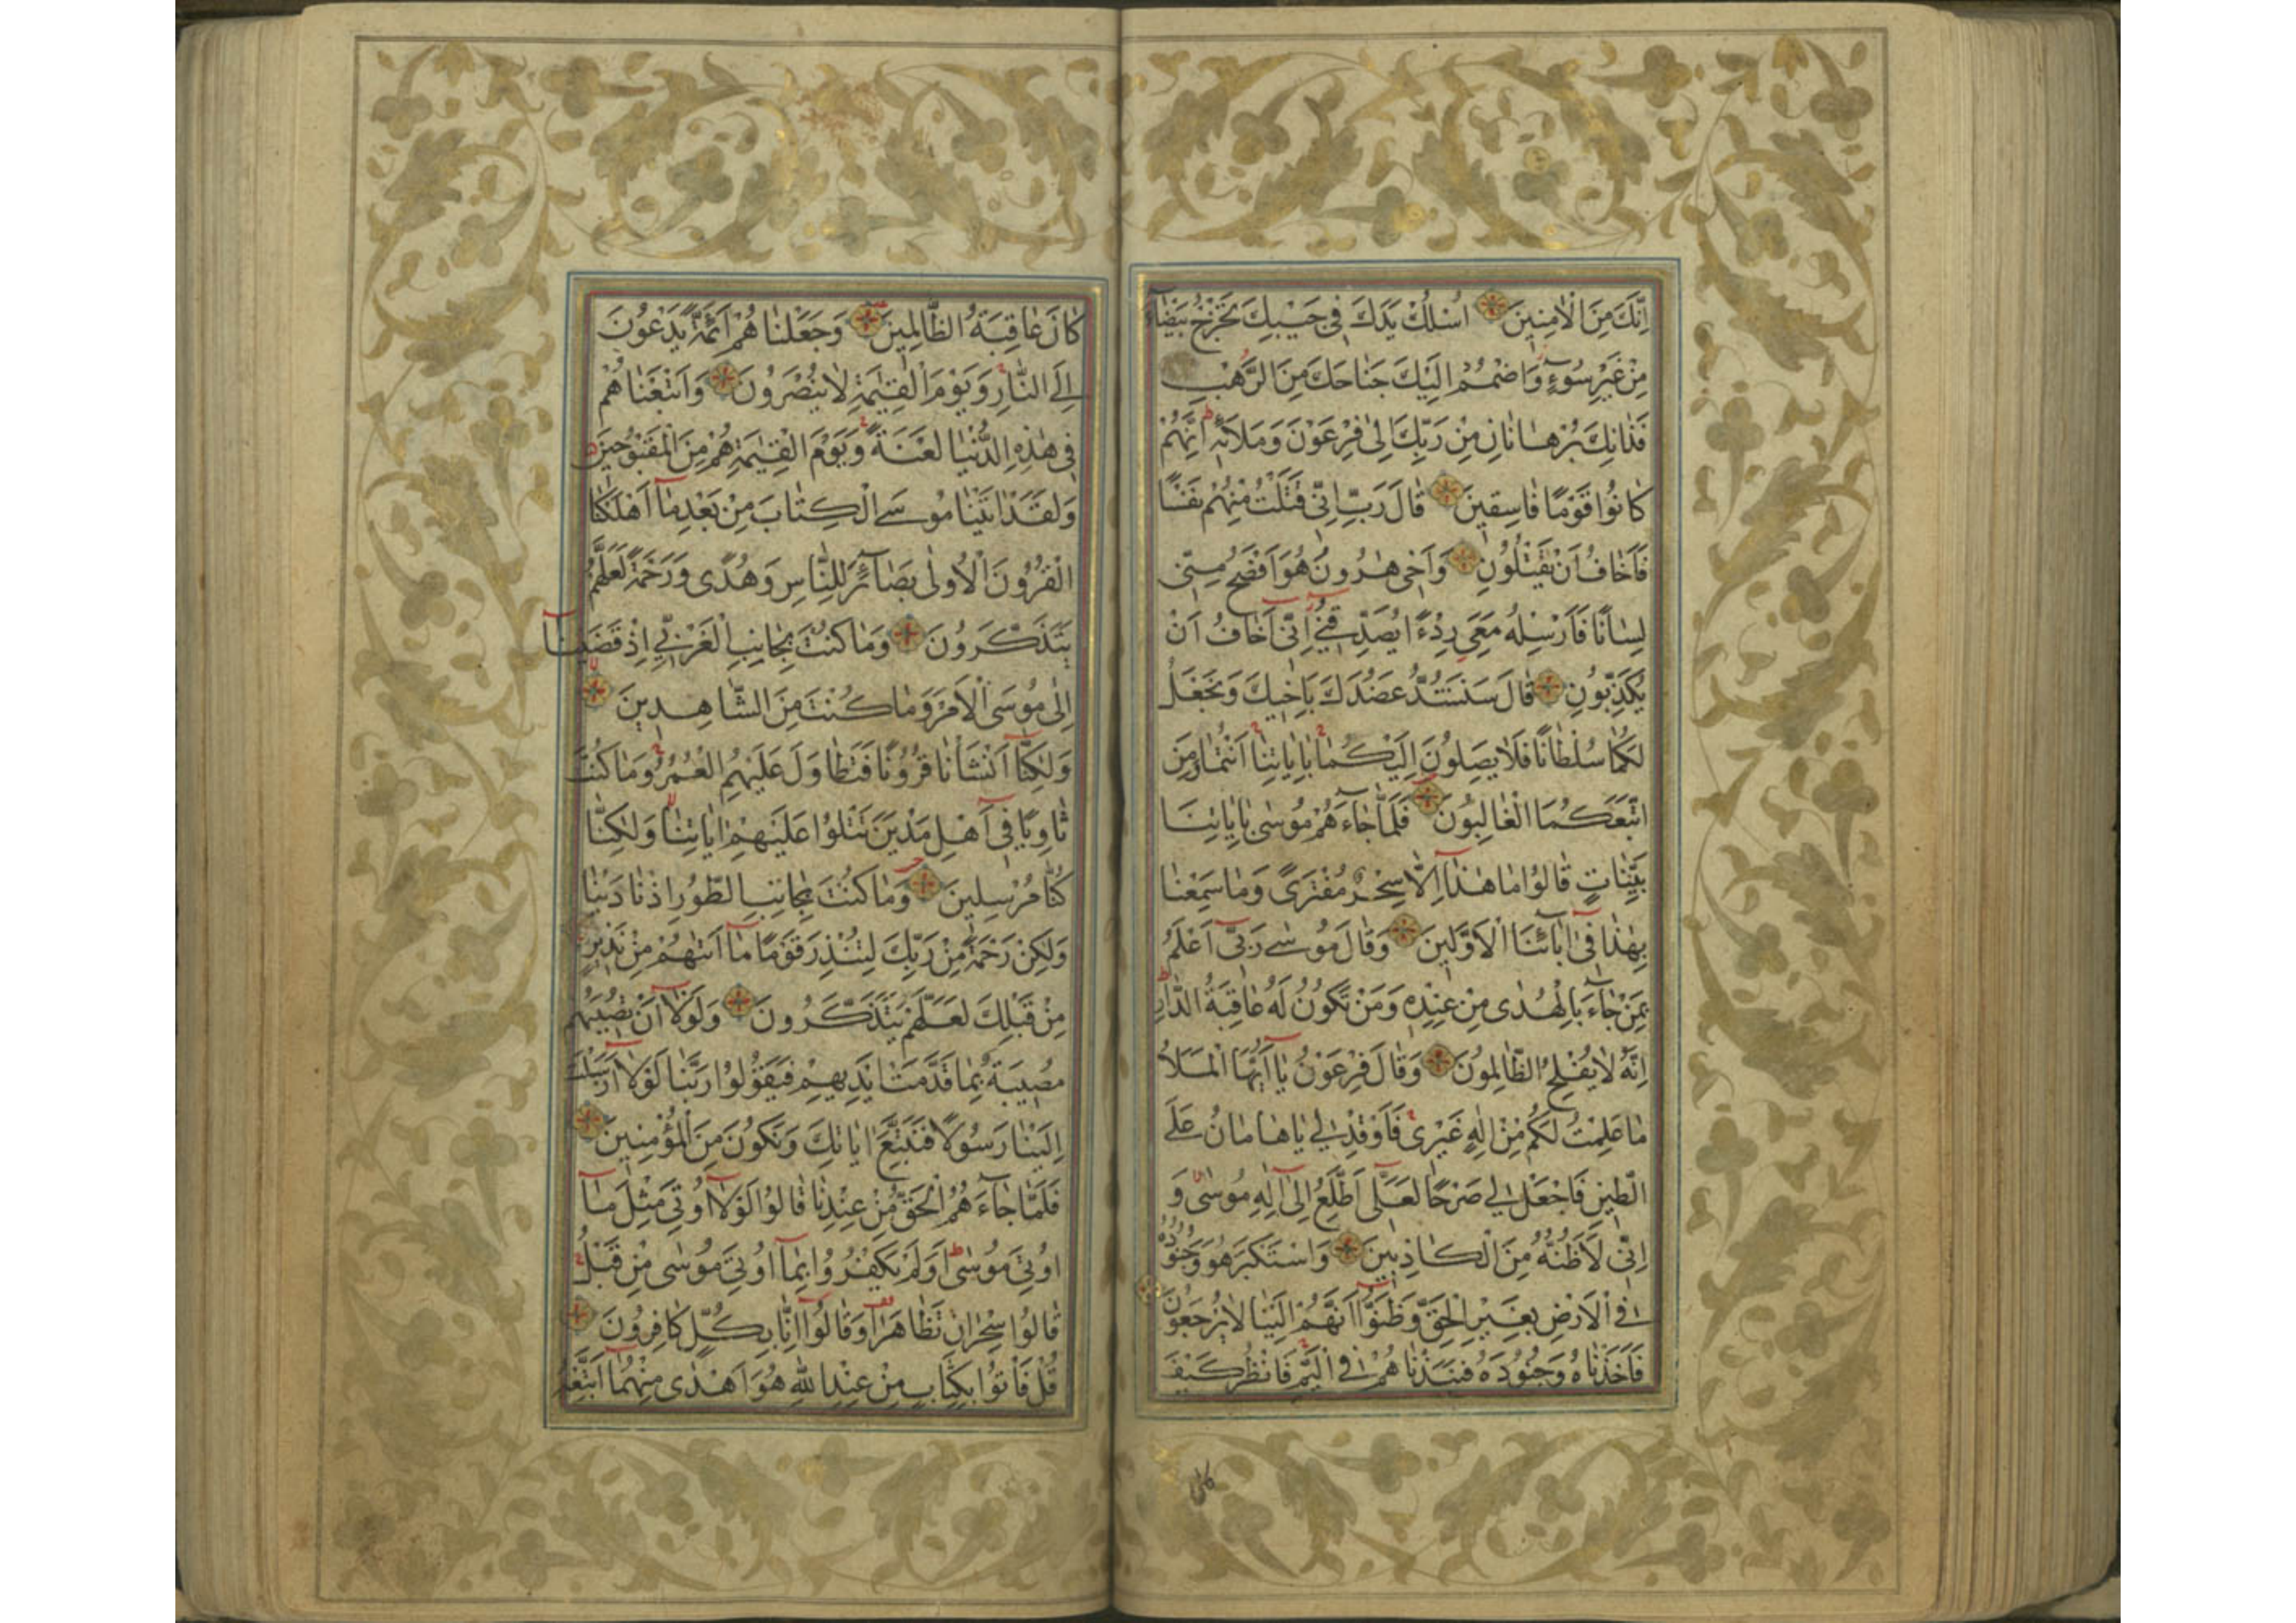 اِنَّكَ مِنَ الْاٰمِنِينَ اُسْلُكْ يَدَكَ فِي جَيْبِكَ تَخْرُجْ بَيْضَآءَ
مِنْ غَيْرِ سُوۤءٍ وَاضْمُمْ اِلَيْكَ جَنَاحَكَ مِنَ الرَّهْبِ
فَذَانِكَ بُرْهَانَانِ مِنْ رَبِّكَ اِلٰى فِرْعَوْنَ وَمَلَائِهٖ اِنَّهُمْ
كَانُوا قَوْمًا فَاسِقِينَ قَالَ رَبِّ اِنِّي قَتَلْتُ مِنْهُمْ نَفْسًا
فَاَخَافُ اَنْ يَقْتُلُونِ وَاَخِي هٰرُونُ هُوَ اَفْصَحُ مِنِّي
لِسَانًا فَاَرْسِلْهُ مَعِيَ رِدْءًا يُصَدِّقُنِي اِنِّي اَخَافُ اَنْ
يُكَذِّبُونِ قَالَ سَنَشُدُّ عَضُدَكَ بِاَخِيكَ وَنَجْعَلُ
لَكُمَا سُلْطَانًا فَلَا يَصِلُونَ اِلَيْكُمَا بِاٰيَاتِنَا اَنْتُمَا وَمَنِ
اتَّبَعَكُمَا الْغَالِبُونَ فَلَمَّا جَآءَهُمْ مُوسٰى بِاٰيَاتِنَا
بَيِّنَاتٍ قَالُوا مَا هٰذَا اِلَّا سِحْرٌ مُفْتَرًى وَمَا سَمِعْنَا
بِهٰذَا فِي اٰبَآئِنَا الْاَوَّلِينَ وَقَالَ مُوسٰى رَبِّي اَعْلَمُ
بِمَنْ جَآءَ بِالْهُدٰى مِنْ عِنْدِهٖ وَمَنْ تَكُونُ لَهُ عَاقِبَةُ الدَّارِ
اِنَّهُ لَا يُفْلِحُ الظَّالِمُونَ وَقَالَ فِرْعَوْنُ يَا اَيُّهَا الْمَلَاُ
مَا عَلِمْتُ لَكُمْ مِنْ اِلٰهٍ غَيْرِي فَاَوْقِدْ لِي يَا هَامَانُ عَلَى
الطِّينِ فَاجْعَلْ لِي صَرْحًا لَعَلِّي اَطَّلِعُ اِلٰى اِلٰهِ مُوسٰى وَ
اِنِّي لَاَظُنُّهُ مِنَ الْكَاذِبِينَ وَاسْتَكْبَرَ هُوَ وَجُنُودُهُ
فِي الْاَرْضِ بِغَيْرِ الْحَقِّ وَظَنُّوا اَنَّهُمْ اِلَيْنَا لَا يُرْجَعُونَ
فَاَخَذْنَاهُ وَجُنُودَهُ فَنَبَذْنَاهُمْ فِي الْيَمِّ فَانْظُرْ كَيْفَ
كان
كَانَ عَاقِبَةُ الظَّالِمِينَ وَجَعَلْنَاهُمْ اَئِمَّةً يَدْعُونَ
اِلَى النَّارِ وَيَوْمَ الْقِيٰمَةِ لَا يُنْصَرُونَ وَاَتْبَعْنَاهُمْ
فِي هٰذِهِ الدُّنْيَا لَعْنَةً وَيَوْمَ الْقِيٰمَةِ هُمْ مِنَ الْمَقْبُوحِينَ
وَلَقَدْ اٰتَيْنَا مُوسَى الْكِتَابَ مِنْ بَعْدِ مَا اَهْلَكْنَا
الْقُرُونَ الْاُولٰى بَصَآئِرَ لِلنَّاسِ وَهُدًى وَرَحْمَةً لَعَلَّهُمْ
يَتَذَكَّرُونَ وَمَا كُنْتَ بِجَانِبِ الْغَرْبِيِّ اِذْ قَضَيْنَا
اِلٰى مُوسَى الْاَمْرَ وَمَا كُنْتَ مِنَ الشَّاهِدِينَ
وَلٰكِنَّا اَنْشَاْنَا قُرُونًا فَتَطَاوَلَ عَلَيْهِمُ الْعُمُرُ وَمَا كُنْتَ
ثَاوِيًا فِي اَهْلِ مَدْيَنَ تَتْلُوا عَلَيْهِمْ اٰيَاتِنَا وَلٰكِنَّا
كُنَّا مُرْسِلِينَ وَمَا كُنْتَ بِجَانِبِ الطُّورِ اِذْ نَادَيْنَا
وَلٰكِنْ رَحْمَةً مِنْ رَبِّكَ لِتُنْذِرَ قَوْمًا مَا اَتٰىهُمْ مِنْ نَذِيرٍ
مِنْ قَبْلِكَ لَعَلَّهُمْ يَتَذَكَّرُونَ وَلَوْلَا اَنْ تُصِيبَهُمْ
مُصِيبَةٌ بِمَا قَدَّمَتْ اَيْدِيهِمْ فَيَقُولُوا رَبَّنَا لَوْلَا اَرْسَلْتَ
اِلَيْنَا رَسُولًا فَنَتَّبِعَ اٰيَاتِكَ وَنَكُونَ مِنَ الْمُؤْمِنِينَ
فَلَمَّا جَآءَهُمُ الْحَقُّ مِنْ عِنْدِنَا قَالُوا لَوْلَا اُوتِيَ مِثْلَ مَا
اُوتِيَ مُوسٰى اَوَلَمْ يَكْفُرُوا بِمَا اُوتِيَ مُوسٰى مِنْ قَبْلُ
قَالُوا سِحْرَانِ تَظَاهَرَا وَقَالُوا اِنَّا بِكُلٍّ كَافِرُونَ
قُلْ فَاْتُوا بِكِتَابٍ مِنْ عِنْدِ اللّٰهِ هُوَ اَهْدٰى مِنْهُمَا اَتَّبِعْهُ